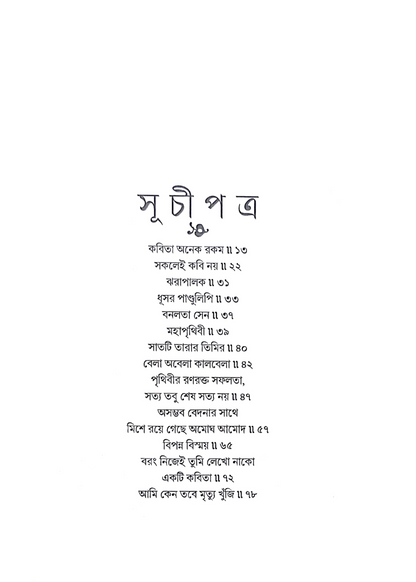 সূচীপত্র
কবিতা অনেক রকম ॥ ১৩
সকলেই কবি নয় ॥ ২২
ঝরাপালক ॥ ৩১
ধূসর পাণ্ডুলিপি ॥ ৩৩
বনলতা সেন ॥ ৩৭
মহাপৃথিবী ॥ ৩৯
সাতটি তারার তিমির ॥ ৪০
বেলা অবেলা কালবেলা ॥ ৪২
পৃথিবীর রণরক্ত সফলতা,
সত্য তবু শেষ সত্য নয় ॥ ৪৭
অসম্ভব বেদনার সাথে
মিশে রয়ে গেছে অমোঘ আমোদ ॥ ৫৭
বিপন্ন বিস্ময় ॥ ৬৫
বরং নিজেই তুমি লেখো নাকো
একটি কবিতা ॥ ৭২
আমি কেন তবে মৃত্যু খুঁজি ॥ ৭৮